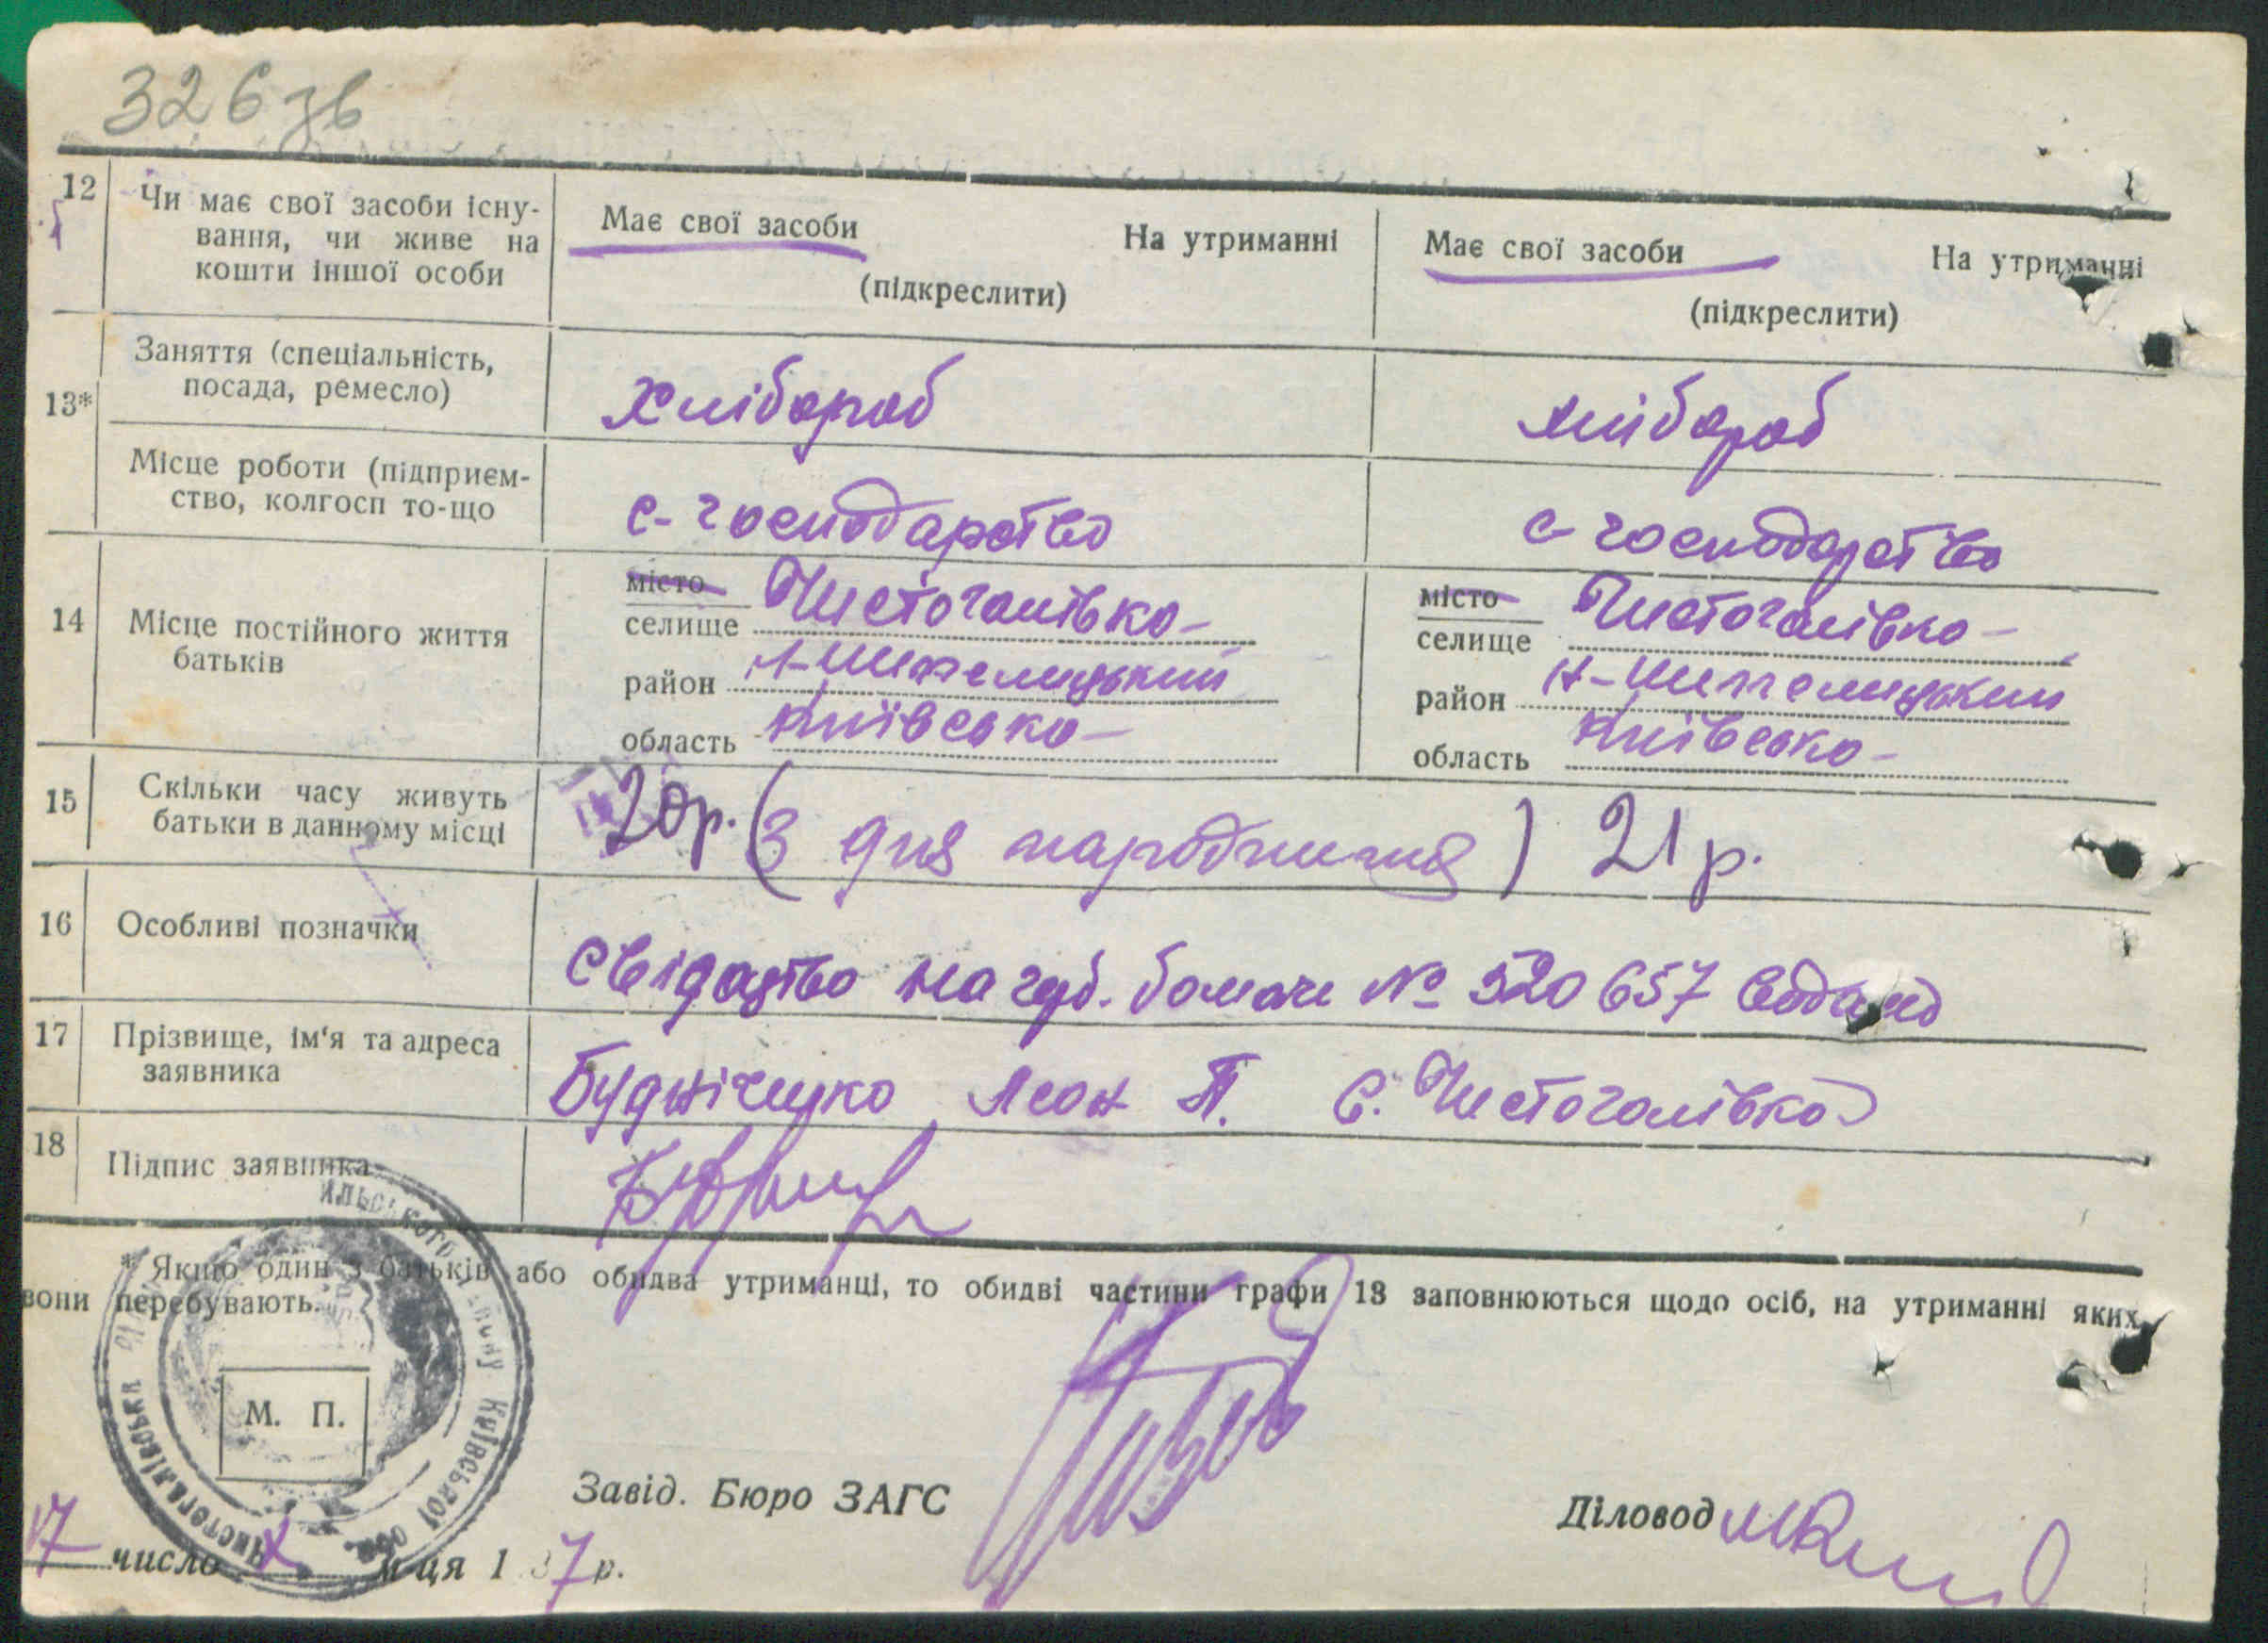 326 зв
12 Чи має свої засоби існу- Має свої засоби На утриманні Має свої засоби На утриманні
вання, чи живе на
кошти іншої особи (підкреслити) (підкреслити)
13* Заняття (спеціальність,
посада, ремесло) Хлібороб хлібороб
Місце роботи (підприєм-
ство, колгосп то-що с-господарство с-господарство
14 Місце постійного життя
батьків
місто Чистогалівка місто Чистогалівка
селище селище
район Н-Шепелицький район Н-Шепелицький
область Київська область Київська
15 Скільки часу живуть
батьки в данному місці 20р. (з дня народження) 21 р.
16 Особливі позначки Свідоцтво на герб. бомазі № 520657 видано
17 Прізвище, ім'я та адреса
заявника Будніченко Леон П. С. Чистогалівка
18 Підпис заявника
* Якщо один з батьків або обидва утриманці, то обидві частини графи 13 заповнюються щодо осіб, на утриманні яких
вони перебувають.
Чистогалівська ильського району Київської обл.
М. П.
Завід. Бюро ЗАГС
Діловод
17 число X м-ця 1937 р.